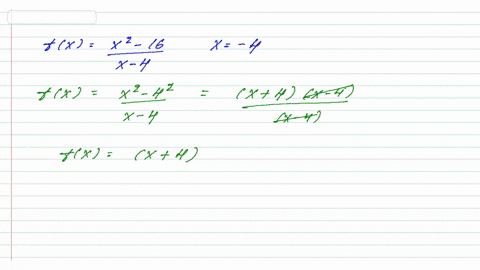 f(x) = x² - 16 / x - 4    x = -4
f(x) = x² - 4² / x - 4 = (x + 4) (x - 4) / (x - 4)
f(x) = (x + 4)